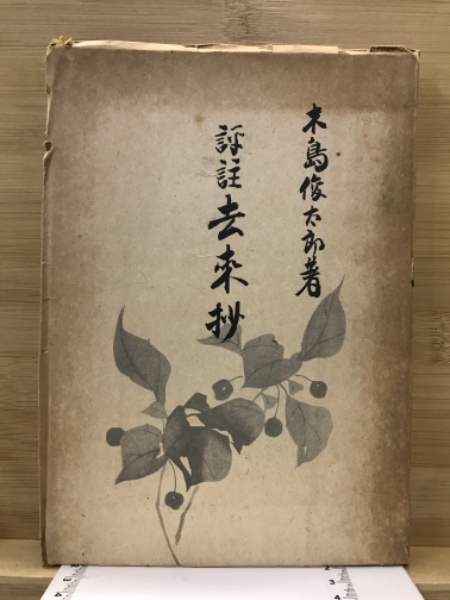 木島俊太郎著
評註 去來抄